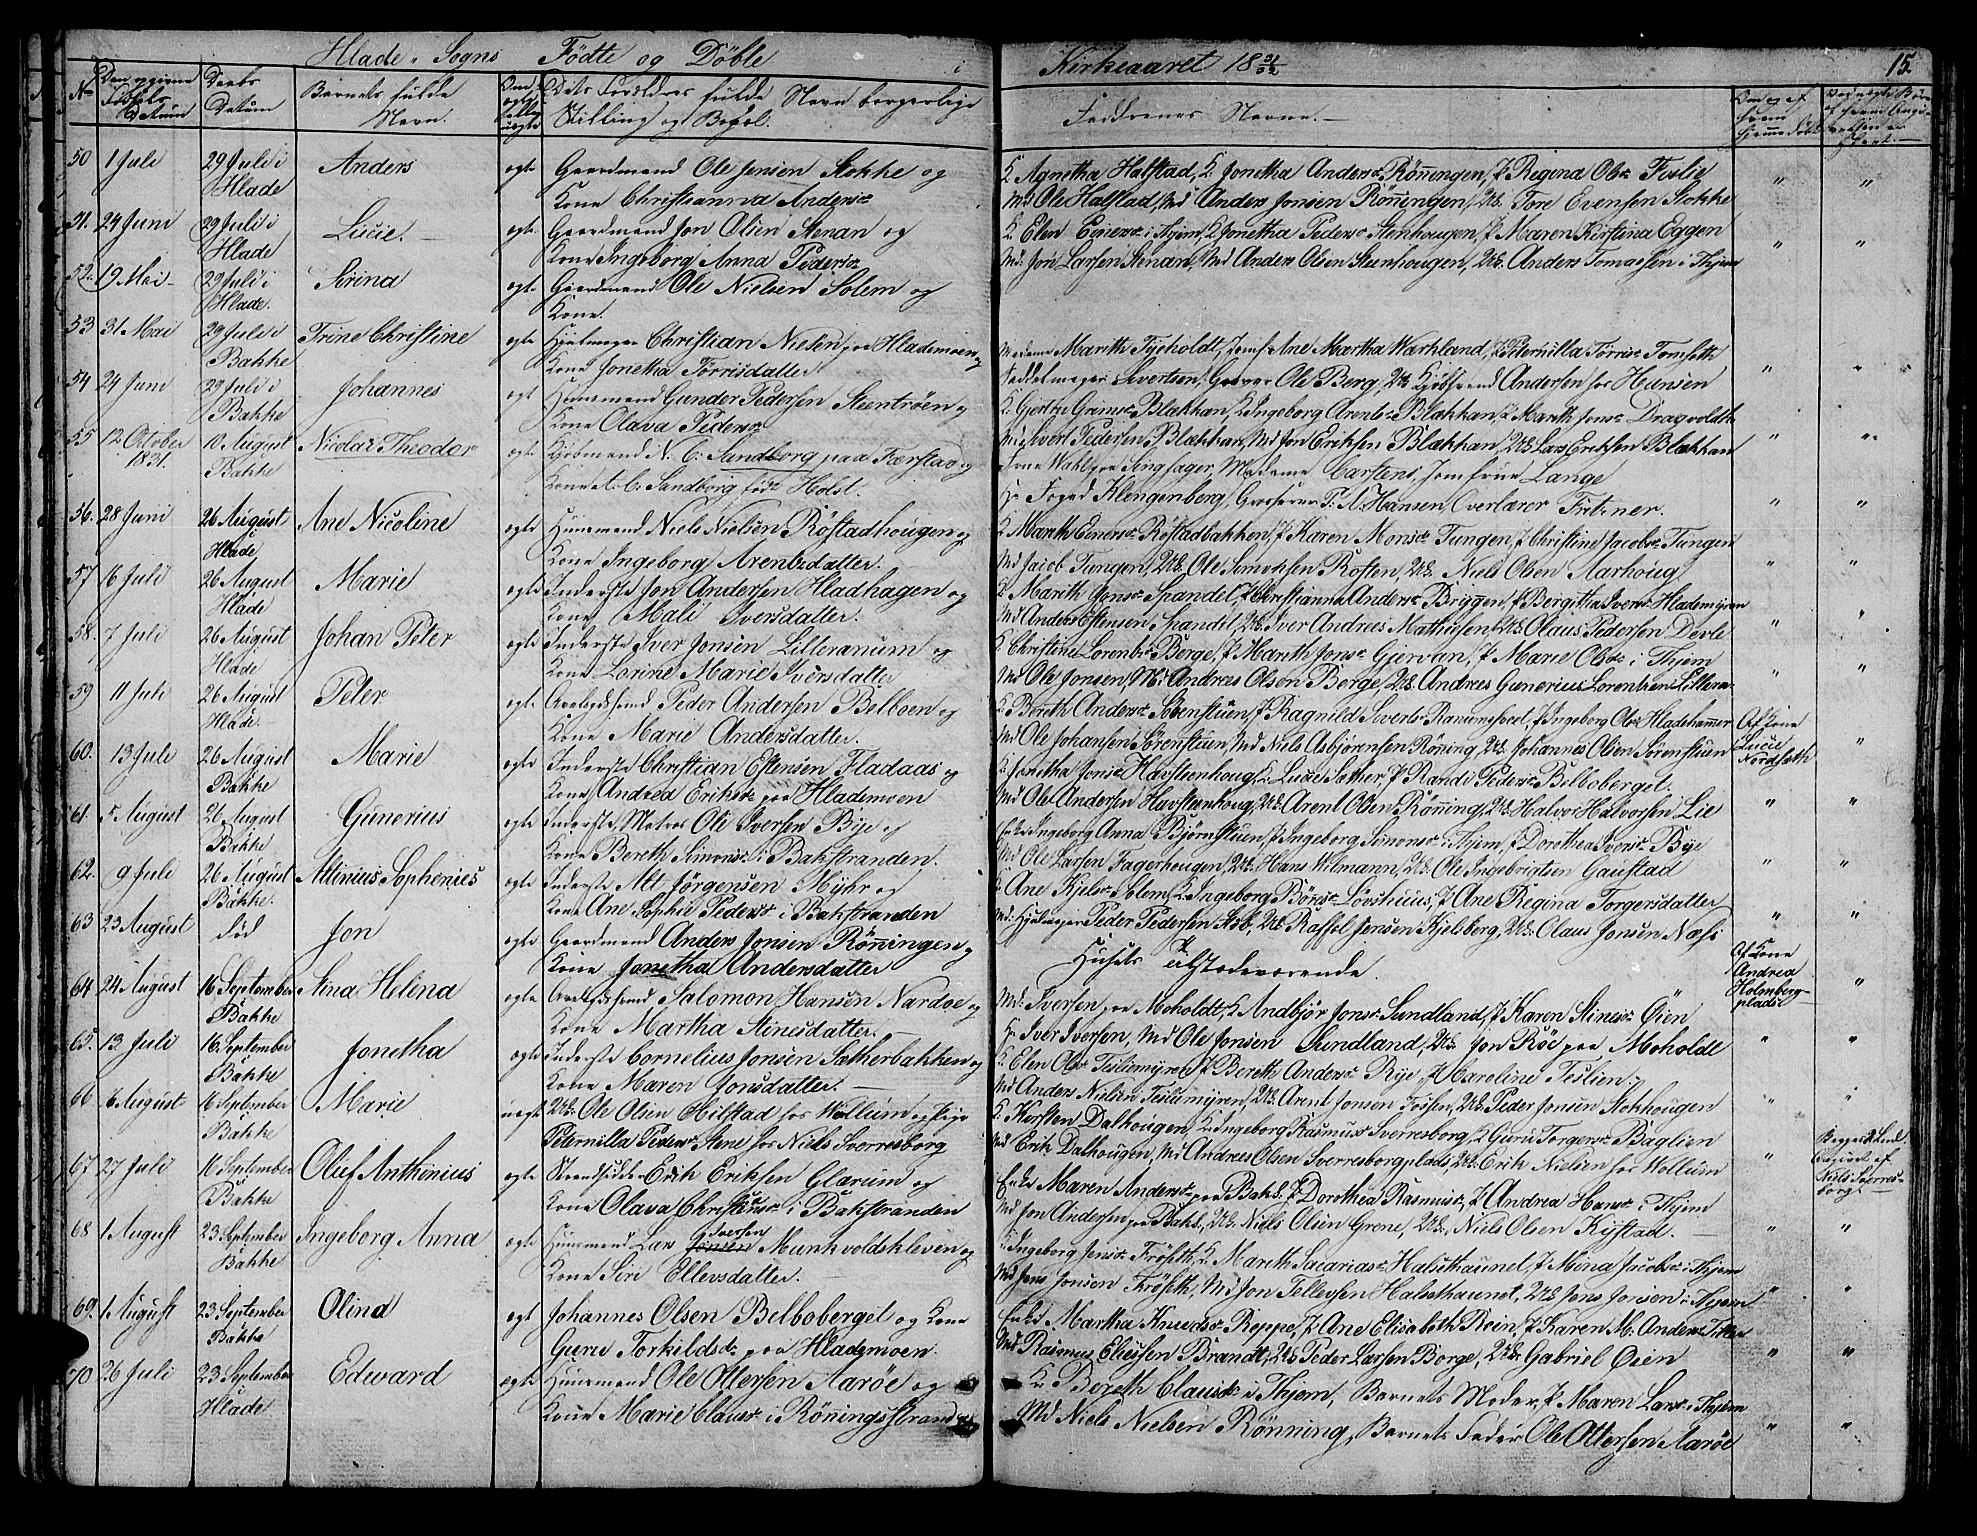 Hlade Sogns Födte og Döbte i Kirkeaaret 18 31/32 15.
No Den opgivne Födsels Datum
Daabs Datum
Barnets fulde Navn.
Dets Forældres fulde Navn borgerlige Stilling og Bopæl.
Faddrenes Navne. —
50 1 Juli 29 Juli i Hlade Anders ægte Gaardmand Ole Jensen Stokke og
Kone Christianna Andersdr
K. Agnetha Halstad, K. Jonetha Andersdr Rönningen, P. Regina Olsdr Teslie
Md Ole Halstad, Md Anders Jonsen Rönningen, Uk. Tore Evensen Stokke
51. 24 Juni 29 Juli i Hlade Lucie. — ægte Gaardmand Jon Olsen Stenan og
Kone Ingeborg Anna Pedersdr
K. Elen Einersdr i Thjem, K. Jonetha Pedersdr Stenhougen, P. Maren Kirstina Eggen
Md. Jon Larsen Stenan, Md Anders Olsen Steenhougen, Uk. Anders Tomassen i Thjem
52. 19 Mai 29 Juli i Hlade. Serina ægte Gaardmand Ole Nielsen Solem og
Kone.
53 31 Mai 29 Juli i Bakke Trine Christine ægte Hjulmager Christian Nielsen paa Hlademoen og
Kone Jonetha Torrisdatter
Madame Marith Tyeholdt, Jomf. Ane Martha Warkland, P. Peternilla Torrisdr Tomseth
Saddelmager Sivertsen, Graver Ole Berg, Uk. Kjöbsvend Andersen for Hansen
54 24 Juni 29 Juli i Bakke Johannes ægt Huusmand Gunder Pedersen Steentröen og
Kone Olava Pedersdr
K. Gjertru Grimsdr Blækhan, K. Ingeborg Arentsdr Blækhan, P. Marith Jonsdr Dragvoldth
Md. Sivert Pedersen Blækhan, Md Jon Eriksen Blækhan, Uk. Lars Eriksen Blækhan
55 12 October 1831. 10 August Bakke Nicolai Theodor ægte Kjöbmand N. C. Sandborg paa Færstad og
Kone A. C. Sandborg föd Holst.
Frue Wahl paa Singsager, Madame Carstens, Jomfrue Lange
Hr Foged Klengenberg, Grosserer P. A. Hansen, Overlærer Fritzner.
56. 28 Juni 26 August Hlade Ane Nicoline ægte Huusmand Niels Nielsen Röstadhougen og
Kone Ingeborg Arentsdatter. —
K. Marith Einersdr Röstadbakken, P. Karen Monsdr Tungen, P. Christine Jacobsdr Tungen
Md Jacob Tungen, Uk. Ole Simonsen Rosten, Uk. Niels Olsen Aarhoug
57 6 Juli 26 August Hlade Marie ægte Inderste Jon Andersen Hladhagen og
Kone Mali Iversdatter.
K. Marith Jonsdr Spandel, K. Christianna Andersdr Bryggen, P. Bergitha Iversdr Hlademyren
Md Anders Estensen Spandel, Uk. Iver Andreas Mathisen, Uk. Olaus Pedersen Devle
58. 7 Juli 26 August Hlade Johan Peter ægte Inderste Iver Jonsen Lilleranum og
Kone Lorine Marie Iversdatter
K. Christine Lorentsdr Berge, P. Marith Jonsdr Gjervan, P. Marie Olsdr i Thjem
Md Ole Jonsen, Md Andreas Olsen Berge, Uk. Andreas Gunerius Lorentzen Lillera-
59 11 Juli 26 August Hlade. Peter ægte Arbeidsmand Peder Andersen Belboen og
Kone Marie Andersdatter.
K. Bereth Andersdr Sörenstuen, P. Ragnild Sivertsdr Ranumsbeet, P. Ingeborg Olsdr Hladehammer
Md Ole Johansen Sörenstuen, Md Niels Asbjörensen Röning, Uk. Johannes Olsen Sörenstuen
Af Kone Lucie Nordsæth
60. 13 Juli 26 August Bakke Marie ægte Inderste Christian Estensen Fladaas og
Kone Andrea Eriksdr paa Hlademoen
K. Jonetha Jonsdr Havsteenhoug, K. Lucie Sæther, P. Randi Pedersdr Belboberget.
Md Ole Andersen Havsteenhoug, Uk. Arent Olsen Röning, Uk. Halvor Halvorsen Lie
61. 5 August 26 August Bakke Gunerius ægte Inderste Matros Ole Iversen Bye og
Kone Bereth Simonsdr i Bakstranden.
Enke Ingeborg Anna Björnstuen, P. Ingeborg Simonsdr i Thjem, P. Dorothea Iversdr Bye
Md Ole Larsen Fagerhougen, Uk. Hans Wilmann, Uk. Ole Ingebrigtsen Gaustad
62. 9 Juli 26 August Bakke. Altinius Sophenies ægte Inderste Alt Jörgensen Myhr og
Kone Ane Sophie Pedersdr i Bakstranden
K. Ane Kjelsdr Solem, K. Ingeborg Börsdr Lövshuus, P. Ane Regina Torgersdatter
Md. Hjulmager Peder Pedersen Stob, Uk. Raffel Jensen Kjelsberg, Uk. Olaus Jonsen Næss
63 23 August död Jon ægte Gaardmand Anders Jonsen Rönningen og
Kone Jonetha Andersdatter
Husets Tilstedeværende.
Af Kone Andrea Holmbergplads
64 24 August 16 September Bakke Stina Helena ægte Arbeidsmand Salomon Hansen Nardoe og
Kone Martha Stinesdatter. —
Md. Iversen paa Moholdt, K. Andbjör Jonsdr Sundland, P. Karen Stinesdr Öien
Hr Iver Iversen, Md Ole Jonsen Sundland, Uk. Jon Röe paa Moholdt
65. 13 Juli 16 September Bakke Jonetha ægte Inderste Cornelius Jonsen Sætherbakken og
Kone Maren Jonsdatter. —
K. Elen Olsdr Teslimyren, P. Bereth Andersdr Rye, P. Maroline Teslien.
Md Anders Nielsen Teslimyren, Uk. Arent Jonsen Fossen, Uk. Peder Jonsen Stokhougen
66 6 August 16 September Bakke Marie uægte Uk. Ole Olsen Hilstad for Wollum og Pige
Peternilla Pedersdr Stene for Niels Sverresborg
K. Kirsten Dalhougen, K. Ingeborg Rasmusdr Sverresborg, P. Guru Torgersdr Baglien
Md Erik Dalhougen, Md Andreas Olsen Sverresborgplads, Uk. Erik Nielsen for Wollum
Begges 2. Angivet af Niels Sverresborg. —
67. 27 Juli 16 September Bakke Oluf Anthonius ægte Strandsidder Erik Eriksen Glarum og
Kone Olava Christiansdr i Bakstranden
Enke Maren Andersdr paa Bakl. P. Dorothea Rasmusdr, P. Andrea Hansdr i Thjem
Md Jon Andersen paa Bakl, Uk. Niels Olsen Grene, Uk. Niels Olsen Kystad. —
68 1 August 23 September Bakke Ingeborg Anna ægte Huusmand Lars Jonsen Iversen Munkvoldskleven og
Kone Siri Ellevsdatter. —
K. Ingeborg Jensdr Fröseth, K. Mareth Sacariasdr Halsethaunet, P. Mina Jacobsdr i Thjem
Md Jens Jonsen Fröseth, Md Jon Tellevsen Halsethaunet, Uk. Jens Jonsen i Thjem
69. 1 August 23 September Bakke Olina ægt Johannes Olsen Belboberget og Kone
Guru Torkildsdr paa Hlademoen.
Enke Martha Knudsdr Reppe, P. Ane Elisabeth Rein, P. Karen M. Andersdr Tiller
Md Rasmus Eliessen Brandt, Uk. Peder Larsen Borge, Uk. Gabriel Öien
70 26 Juli 23 September Hlade Edward ægte Huusmand Ole Ottersen Aaröe og
Kone Marie Clausdr i Röningsstrand
K. Bereth Clausdr i Thjem, Barnets Moder, P. Maren Larsdr i Thjem
Md Niels Nielsen Rönning, Barnets Fader Ole Ottersen Aaröe